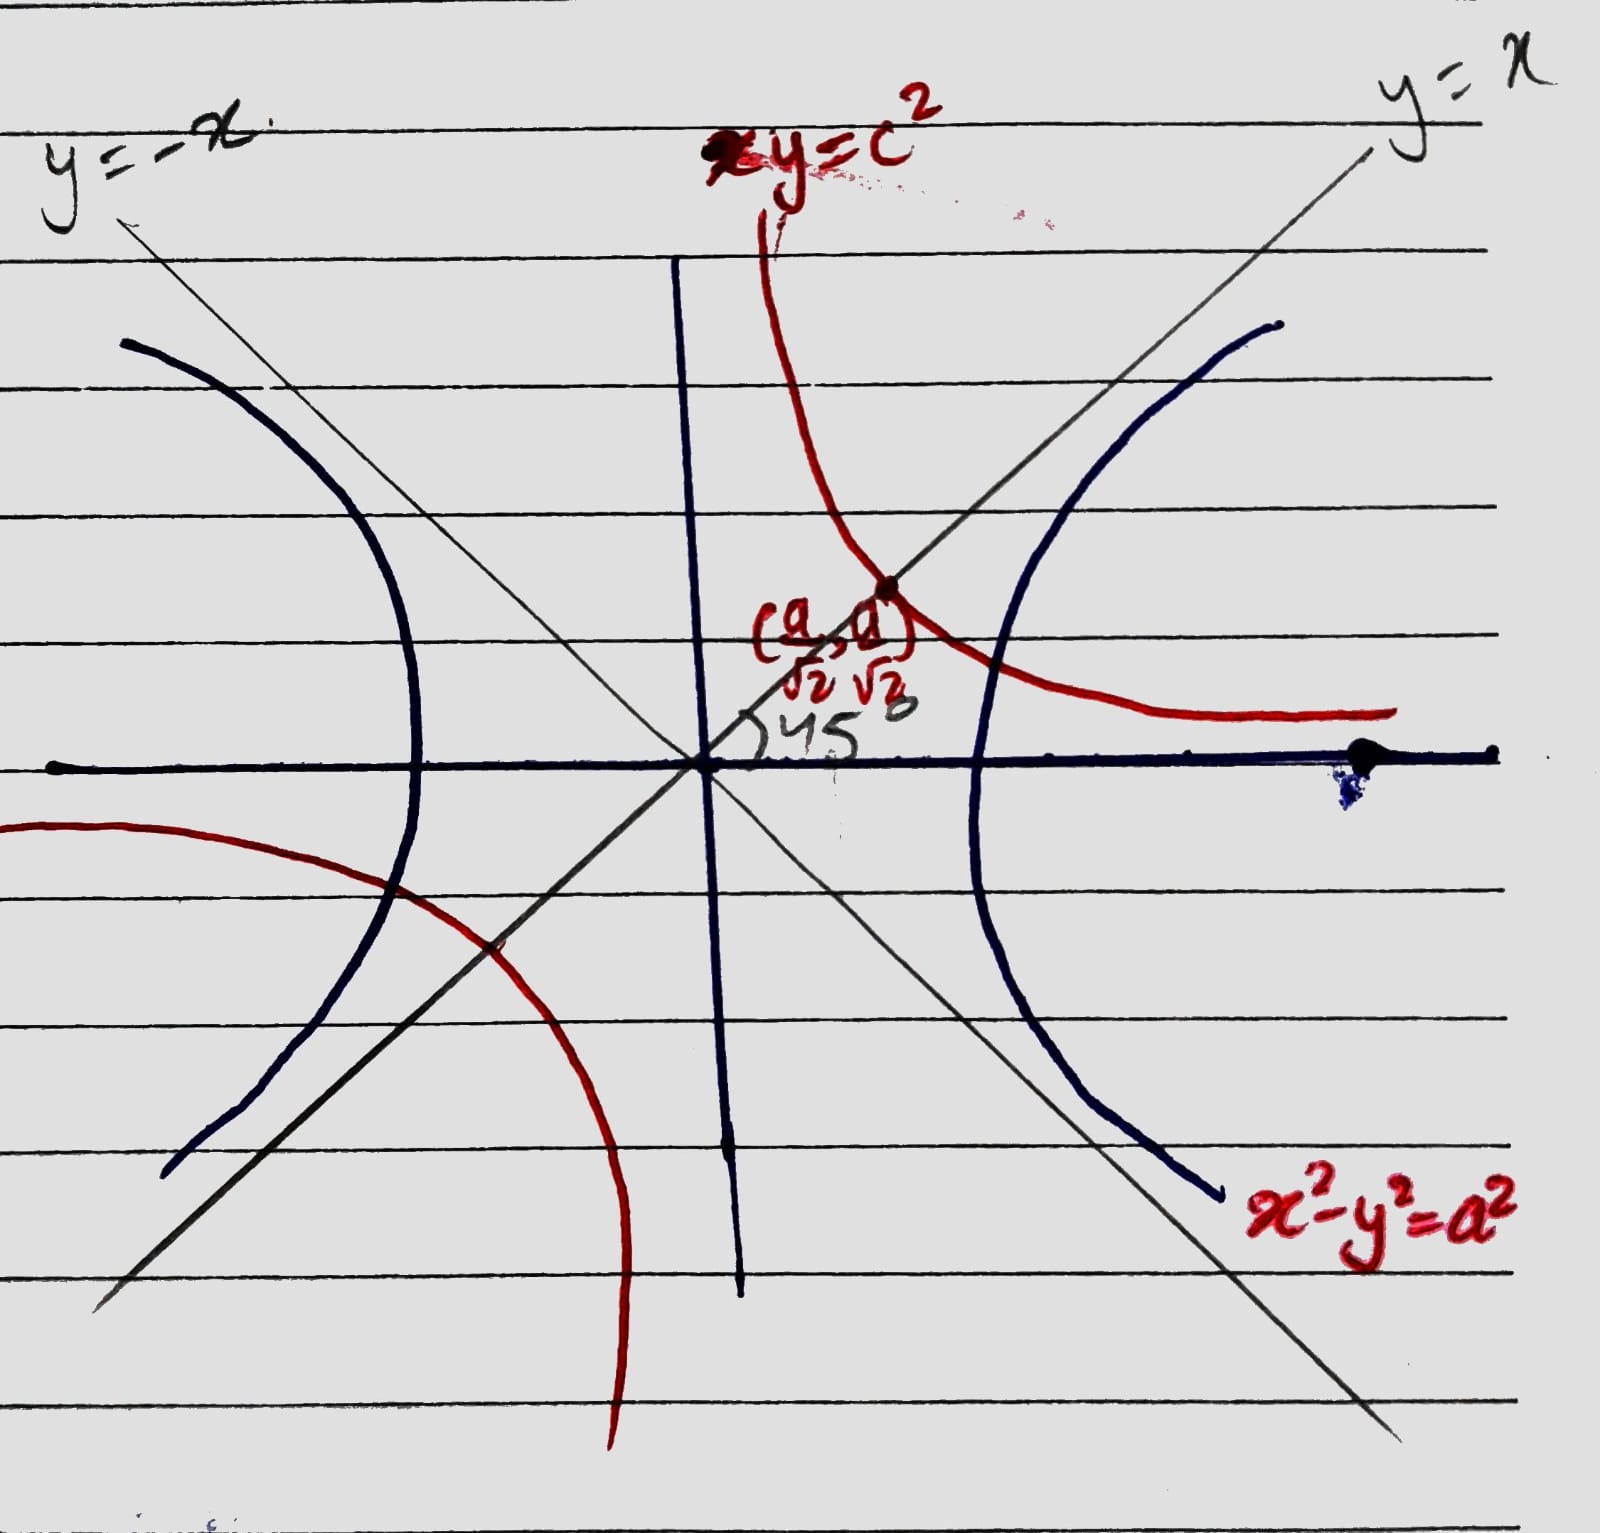 y = x
xy = c²
y = -x
(a/√2, a/√2)
45°
x² - y² = a²